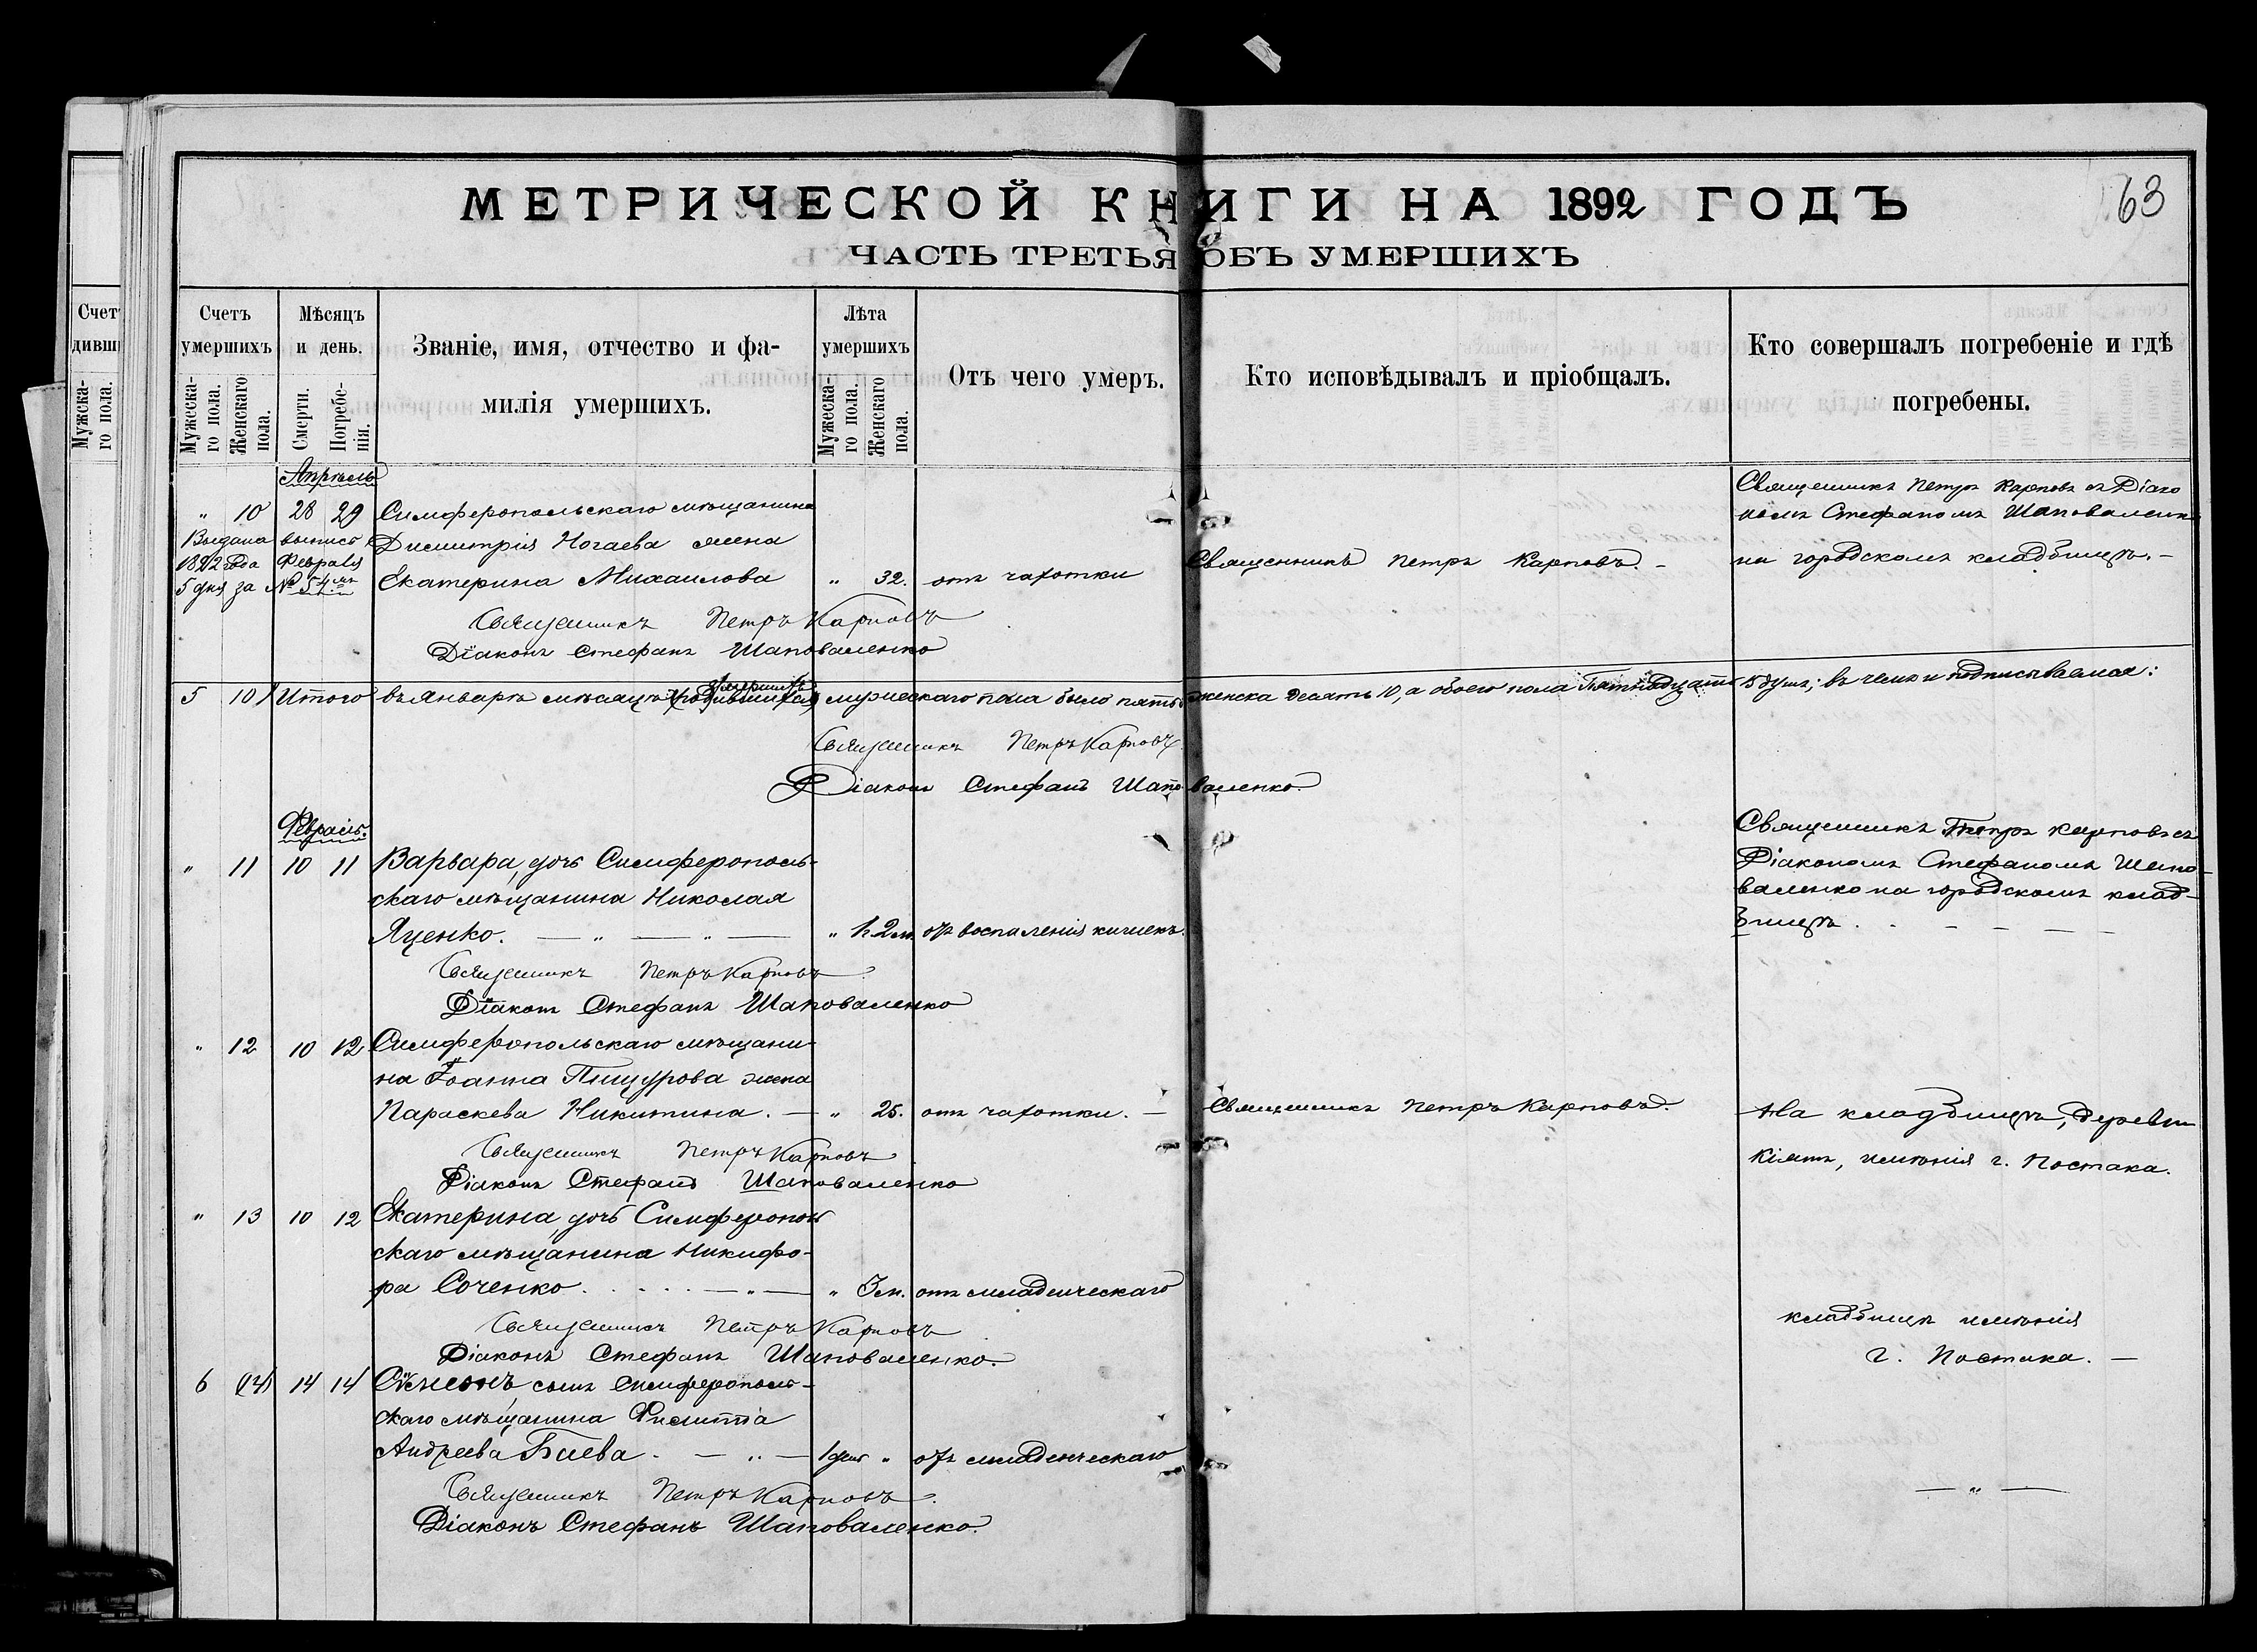 МЕТРИЧЕСКОЙ КНИГИ НА 1892 ГОДЪ
63
ЧАСТЬ ТРЕТЬЯ ОБЪ УМЕРШИХЪ
Счетъ умершихъ
Мѣсяцъ и день.
Званіе, имя, отчество и фа-
милія умершихъ.
Лѣта умершихъ
Отъ чего умеръ.
Кто исповѣдывалъ и пріобщалъ.
Кто совершалъ погребеніе и гдѣ
погребены.
Мужеска-
го пола.
Женскаго
пола.
Смерти.
Погребе-
нія.
Мужеска-
го пола.
Женскаго
пола.
Апрѣль
Священникъ Петръ Карповъ съ Діако
" 10 28 29 Симферопольскаго мѣщанина
номъ Стефаномъ Шаповаленк
Выдана выпись Димитрія Ногаева жена
1892 года Февраля
5 дня за № 54 Екатерина Михаилова " 32. отъ чахотки Священникъ Петръ Карповъ. – на городскомъ кладбищѣ. –
Священникъ Петръ Карповъ
Діаконъ Стефанъ Шаповаленко
умершихъ
5 10 Итого въ Январѣ мѣсяцѣ (родившихся) мужескаго пола было пять женска десять 10, а обоего пола Пятнадцать 15 душъ; въ чемъ и подписываемся:
Священникъ Петръ Карповъ
Діаконъ Стефанъ Шаповаленко.
Февраль.
" 11 10 11 Варвара, дочь Симферополь-
скаго мѣщанина Николая
Яценко. — " — " — " 2 м. отъ воспаленія кишекъ.
Священникъ Петръ Карповъ съ
Діакономъ Стефаномъ Шапо-
валенко на городскомъ клад-
бищѣ. . – – – –
Священникъ Петръ Карповъ
Діаконъ Стефанъ Шаповаленко
" 12 10 12 Симферопольскаго мѣщани-
на Іоанна Пищурова жена
Параскева Никитина. — " 25. отъ чахотки. — Священникъ Петръ Карповъ. На кладбищѣ, деревни
Кіятъ, имѣнія г. Постака.
Священникъ Петръ Карповъ
Діаконъ Стефанъ Шаповаленко
" 13 10 12 Екатерина, дочь Симферополь
скаго мѣщанина Никифо-
ра Соченко. . . . . — " — " 3 м. отъ младенческаго
кладбищѣ имѣнія
г. Постака. —
Священникъ Петръ Карповъ
Діаконъ Стефанъ Шаповаленко.
6 (14) 14 14 Сѵмеонъ сынъ Симферополь-
скаго мѣщанина Филиппа
Андреева Биева. — " — 1 дня " отъ младенческаго
— " —
Священникъ Петръ Карповъ.
Діаконъ Стефанъ Шаповаленко.
Счет
дивш
Мужска-
го пола.